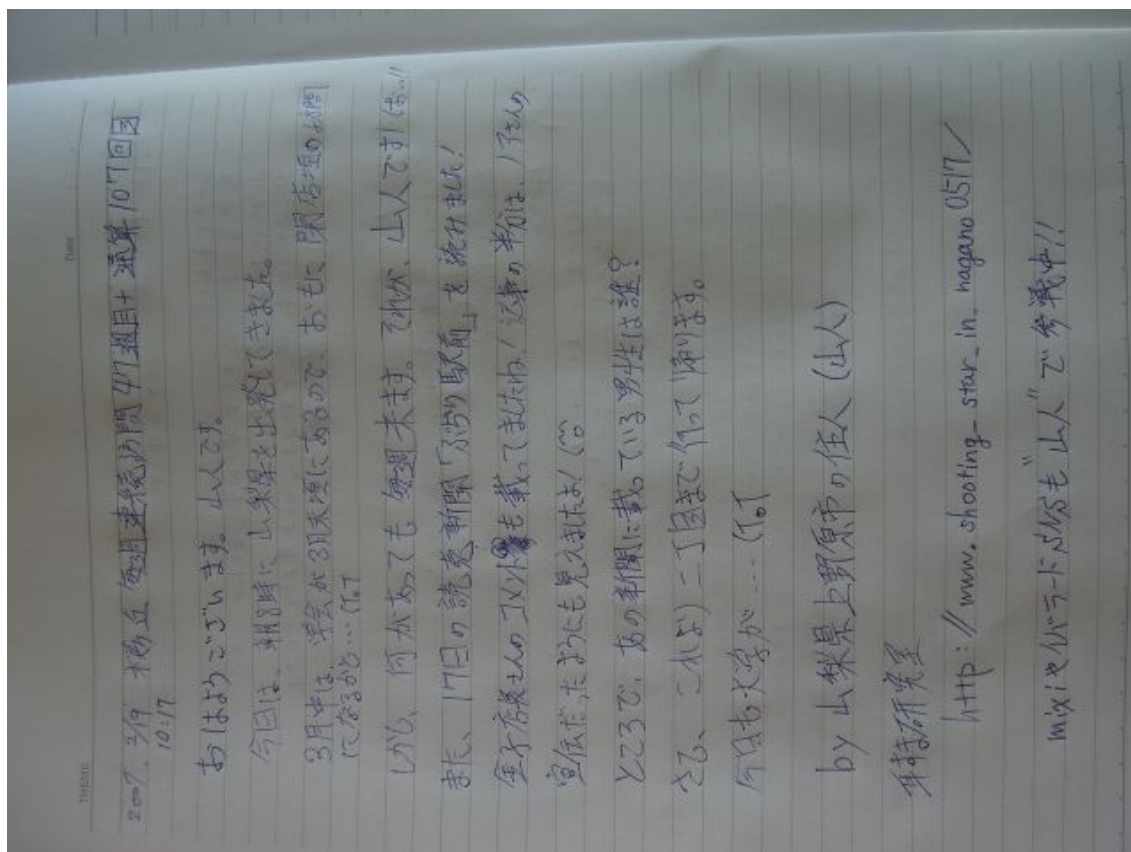 THEME
Date
2007. 2/19 梅ヶ丘 毎週連続訪問47週目+ 通算107回目
10:17
おはようございます。山人です。
今日は、朝8時に山梨県を出発してきました。
3月中は、学会が3月末頃にあるので、おもに、閉店埋のお問
になるかも…(T.T
しかし、何があっても毎週来ます。それが、山人です!(お..!!
また、17日の読売新聞「ぶらり駅前」を読みました!
金子店長さんのコメントも載ってましたね!記事の半分は、
宣伝だったようにも見えましたが(^^;
ところで、あの新聞に載っている男性は誰?
さて、これより二丁目まで行って帰ります。
今日も大学が....(T.T
by 山梨県上野原市の住人(山人)
研究室
http://www.shooting_star_in_nagano0517/
mixiやバラードSNSも"山人"で参戦中!!